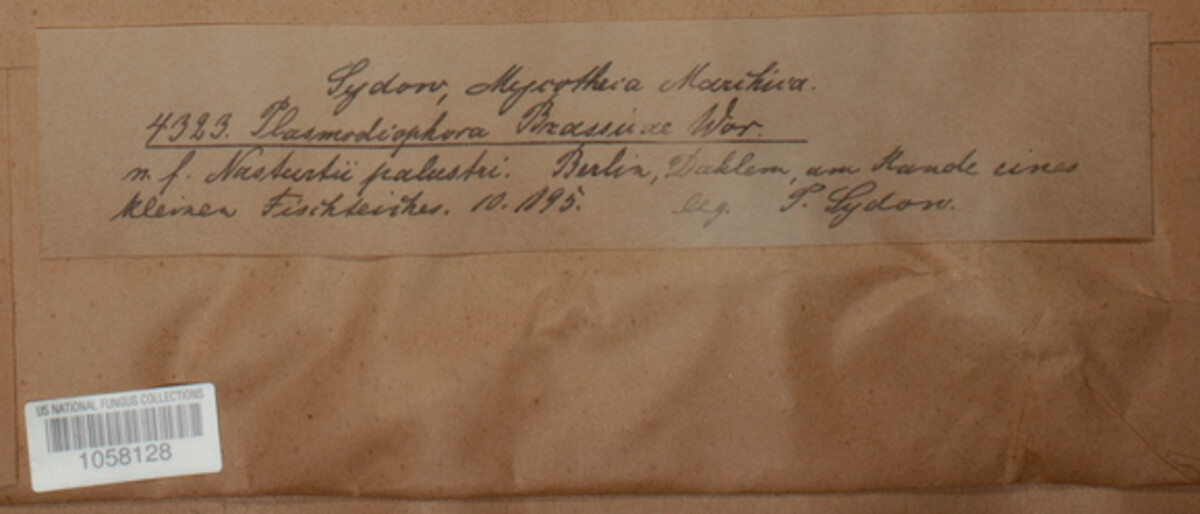 Sydow, Mycotheca Marchica.
4323. Plasmodiophora Brassicae Wor.
n. f. Nasturtii palustri. Berlin, Dahlem, am Rande eines
kleinen Fischteiches. 10. 1895. leg. P. Sydow.
US NATIONAL FUNGUS COLLECTIONS
1058128